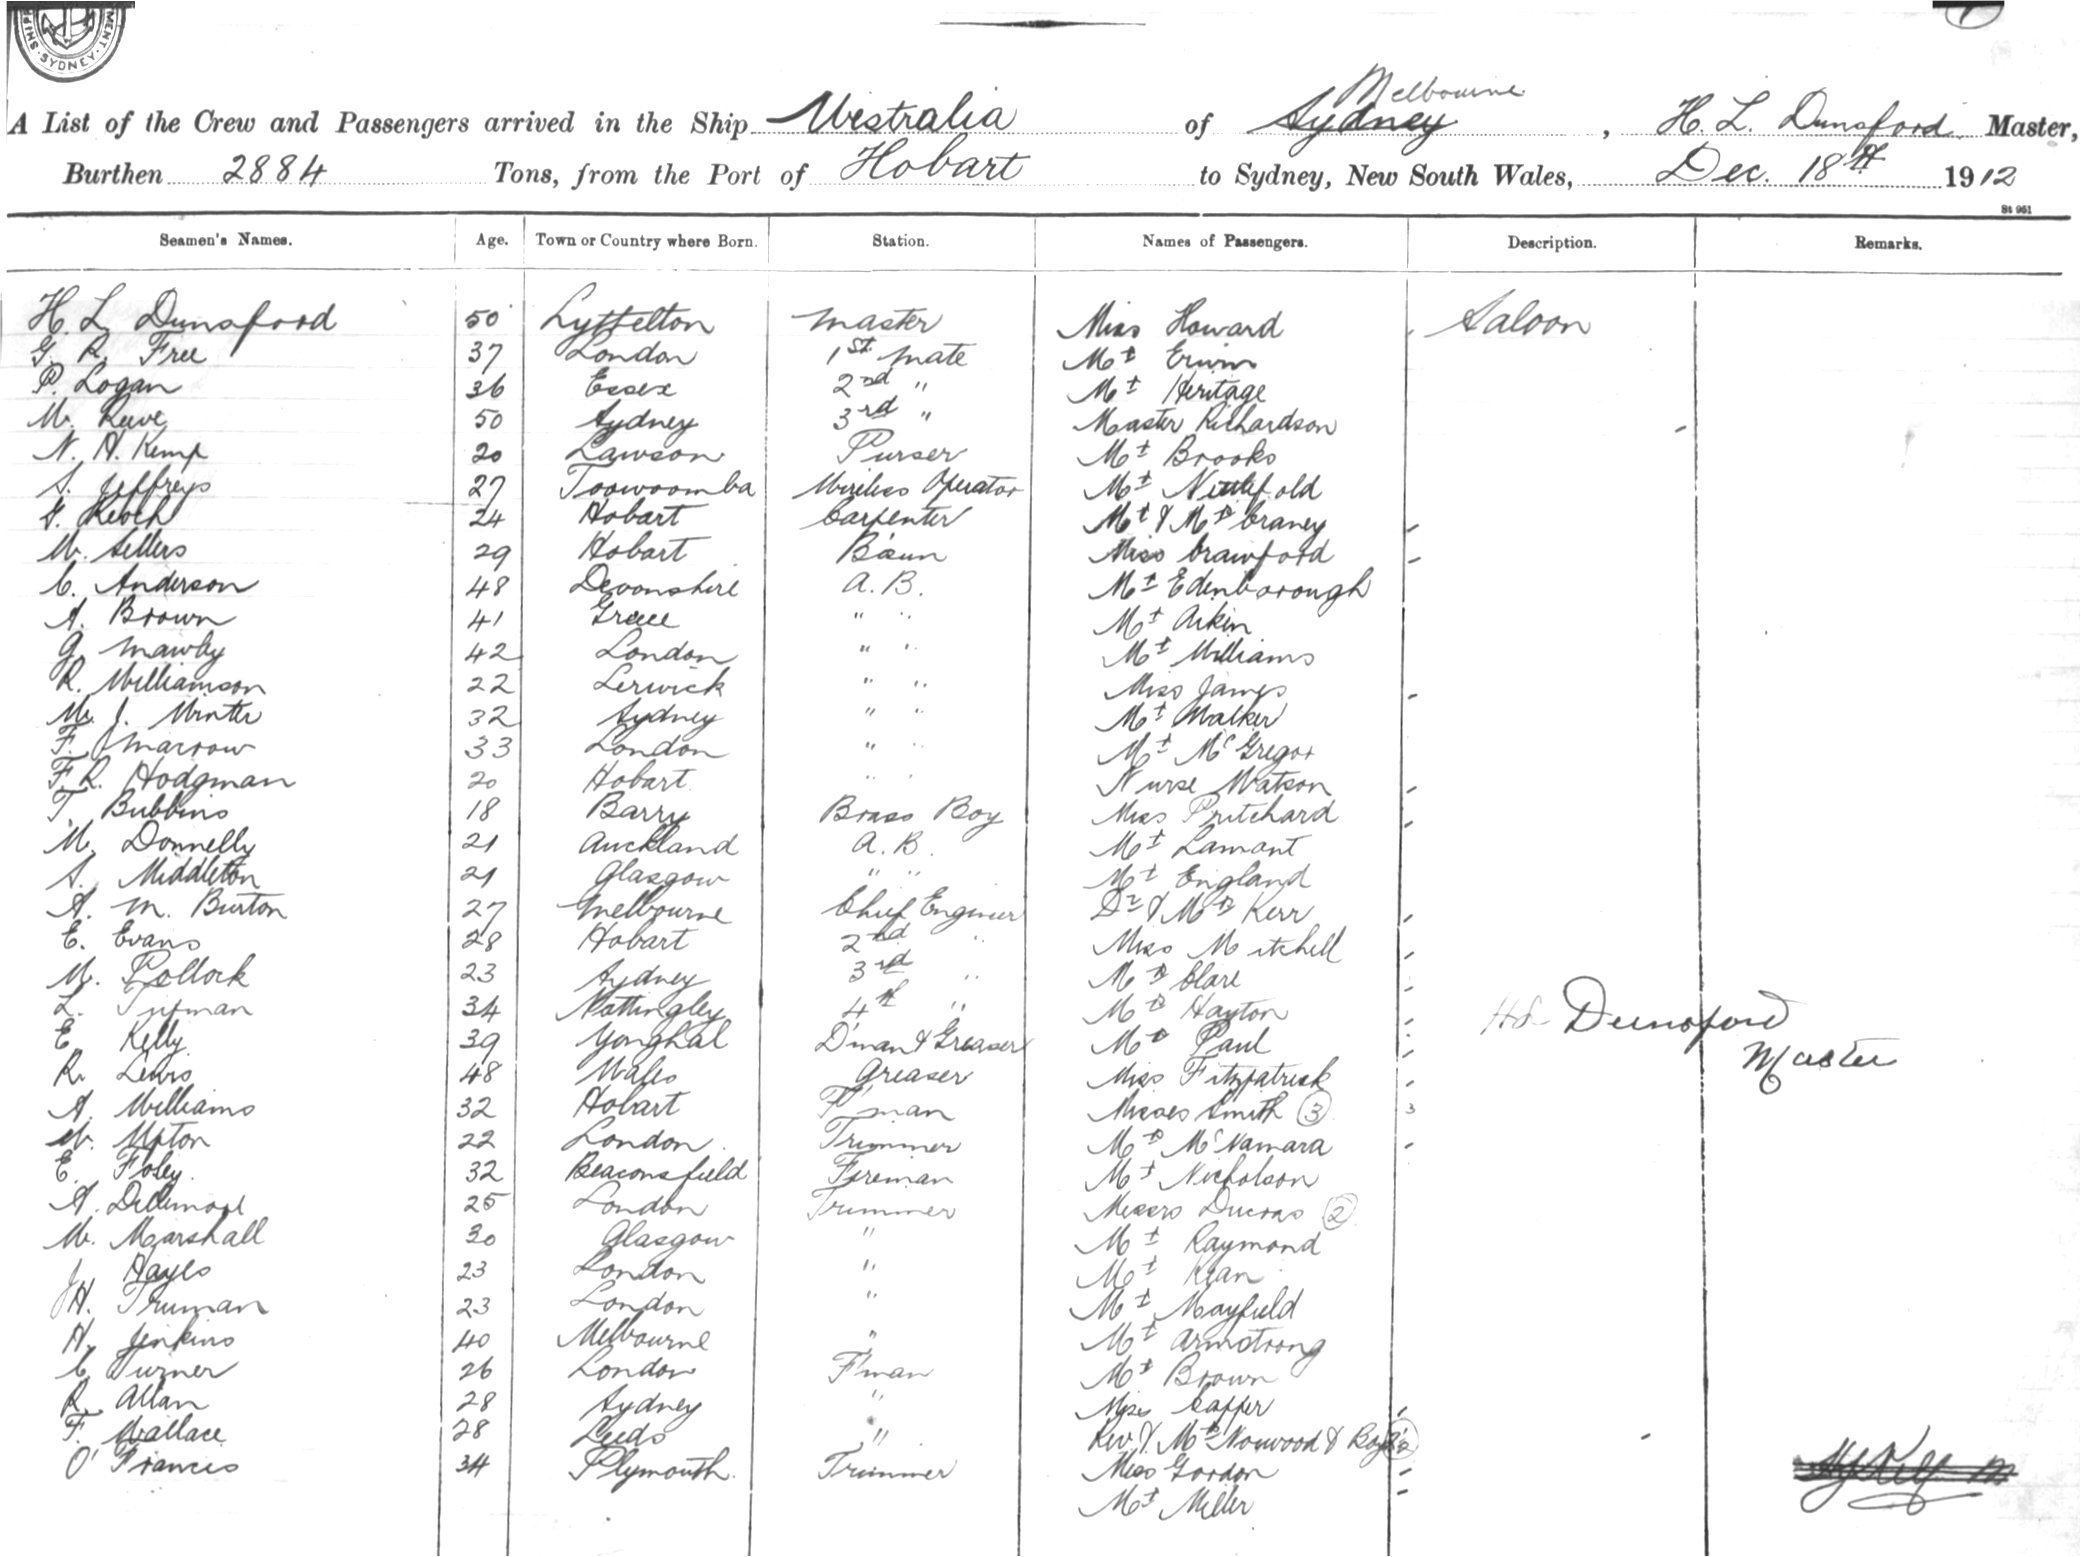 MENT. SYDNEY. SHIP
A List of the Crew and Passengers arrived in the Ship Westralia of Sydney Melbourne, H. L. Dunsford Master,
Burthen 2884 Tons, from the Port of Hobart to Sydney, New South Wales, Dec. 18th 1912
St 961
Seamen's Names. Age. Town or Country where Born. Station. Names of Passengers. Description. Remarks.
H. L. Dunsford 50 Lyttelton Master Miss Howard Saloon
G. R. Free 37 London 1st Mate Mr Erwin
P. Logan 36 Essex 2nd " Mr Heritage
W. Reeve 50 Sydney 3rd " Master Richardson
N. H. Kemp 20 Lawson Purser Mr Brooks
S. Jeffreys 27 Toowoomba Wireless Operator Mr Nettlefold
24 Hobart Carpenter Mr & Mrs Craney
W. Sellers 29 Hobart B'sun Miss Crawford
C. Anderson 48 Devonshire A. B. Mr Edenborough
A. Brown 41 Greece " " Mr Aikin
G. Mawby 42 London " " Mr Williams
R. Williamson 22 Lerwick " " Miss James
W. J. Winter 32 Sydney " " Mr Walker
F. Marrow 33 London " " Mr McGregor
F. R. Hodgman 20 Hobart " " Nurse Watson
T. Bubbins 18 Barry Brass Boy Miss Pritchard
W. Donnelly 21 Auckland A. B. Mr Lamont
S. Middleton 21 Glasgow " " Mr England
A. M. Burton 27 Melbourne Chief Engineer Dr & Mrs Kerr
E. Evans 28 Hobart 2nd " Miss Mitchell
W. Pollock 23 Sydney 3rd " Mrs Clare
L. 34 Nottingley 4th " Mrs Hayton H L Dunsford
E. Kelly 39 Yonghal D'man & Greaser Mrs Paul Master
R. Lewis 48 Wales Greaser Miss Fitzpatrick
A. Williams 32 Hobart F'man Misses Smith (3) 3
W. Upton 22 London Trimmer Mrs McNamara
E. Foley 32 Beaconsfield Fireman Mr Nicholson
A. 25 London Trimmer Messrs Ducras (2)
W. Marshall 30 Glasgow " Mr Raymond
J. Hayes 23 London " Mr Kean
H. Truman 23 London " Mr Mayfield
H. Jenkins 40 Melbourne " Mr Armstrong
C. Turner 26 London F'man Mr Brown
R. Allan 28 Sydney " Miss Capper
F. Wallace 28 Leeds " Rev. & Mrs Norwood & Boys
O' Francis 34 Plymouth Trimmer Miss Gordon
Mr Miller